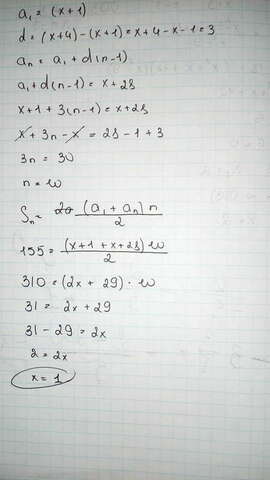 a₁ = (x+1)
d = (x+4) - (x+1) = x+4-x-1 = 3
aₙ = a₁ + d(n-1)
a₁ + d(n-1) = x+28
x+1+3(n-1) = x+28
x + 3n - x = 28 - 1 + 3
3n = 30
n = 10
Sₙ = (a₁ + aₙ) n / 2
155 = (x+1+x+28) 10 / 2
310 = (2x + 29) · 10
31 = 2x + 29
31 - 29 = 2x
2 = 2x
x = 1